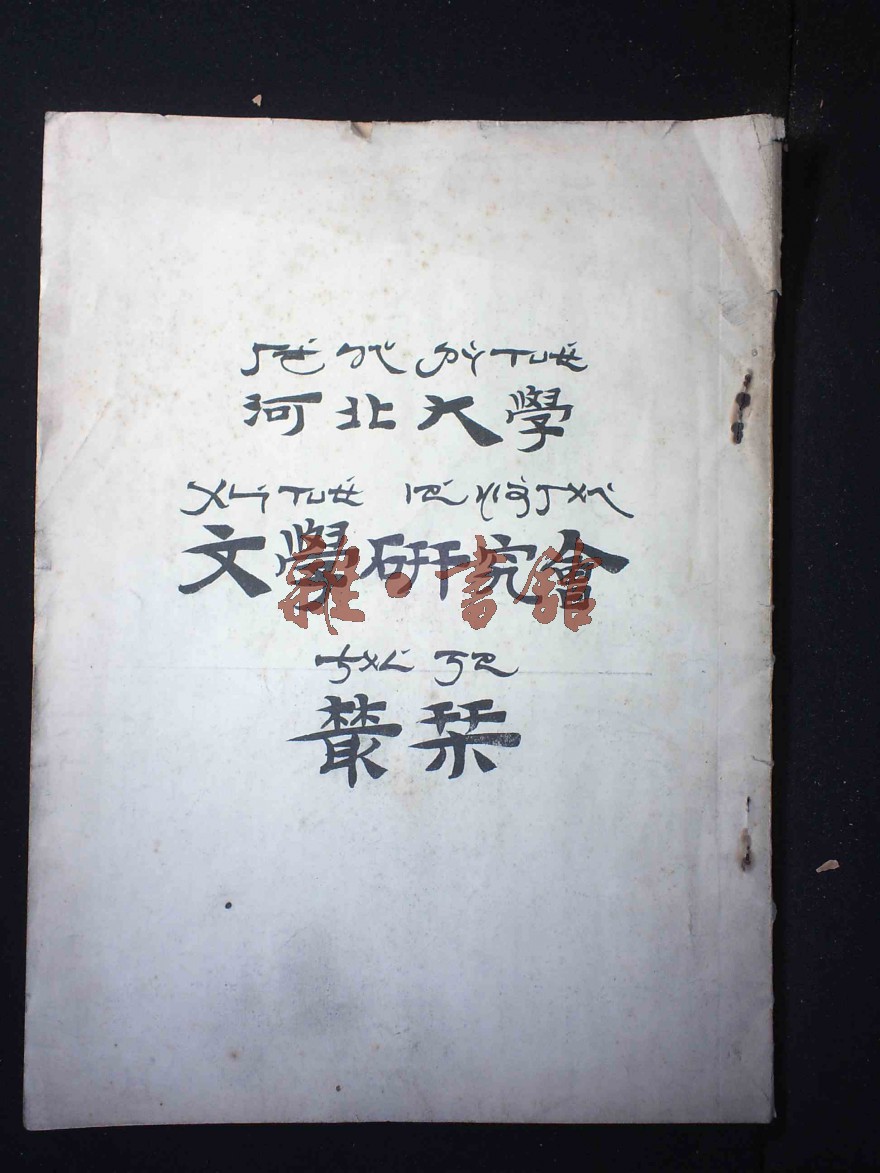 ㄏㄜˊ ㄅㄟˇ ㄉㄚˋ ㄒㄩㄝˊ
河北大學
ㄨㄣˊ ㄒㄩㄝˊ ㄧㄢˊ ㄐㄧㄡˋ ㄏㄨㄟˋ
文學研究會
雜·書館
ㄘㄨㄥˊ ㄎㄢ
叢栞